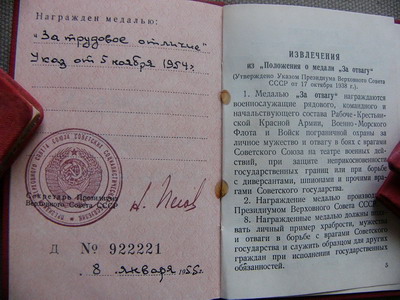 Награжден медалью:
„За трудовое отличие"
Указ от 5 ноября 1954 г.
Секретарь Президиума
Верховного Совета СССР
Д № 922221
8 января 1955 г.
ИЗВЛЕЧЕНИЯ
из „Положения о медали „За отвагу"
(Утверждено Указом Президиума Верховного Совета
СССР от 17 октября 1938 г.)
1. Медалью „За отвагу" награждаются
военнослужащие рядового, командного и
начальствующего состава Рабоче-Крестьян-
ской Красной Армии, Военно-Морского
Флота и Войск пограничной охраны за
личное мужество и отвагу в боях с врагами
Советского Союза на театре военных дей-
ствий, при защите неприкосновенности
государственных границ или при борьбе
с диверсантами, шпионами и прочими вра-
гами Советского государства.
2. Награждение медалью производ
Президиумом Верховного Совета СССР.
8. Награжденные медалью должны
вать личный пример храбрости, мужества
и отваги в борьбе с врагами Советского
и служить образцом для других
граждан при исполнении государственных
обязанностей.
5